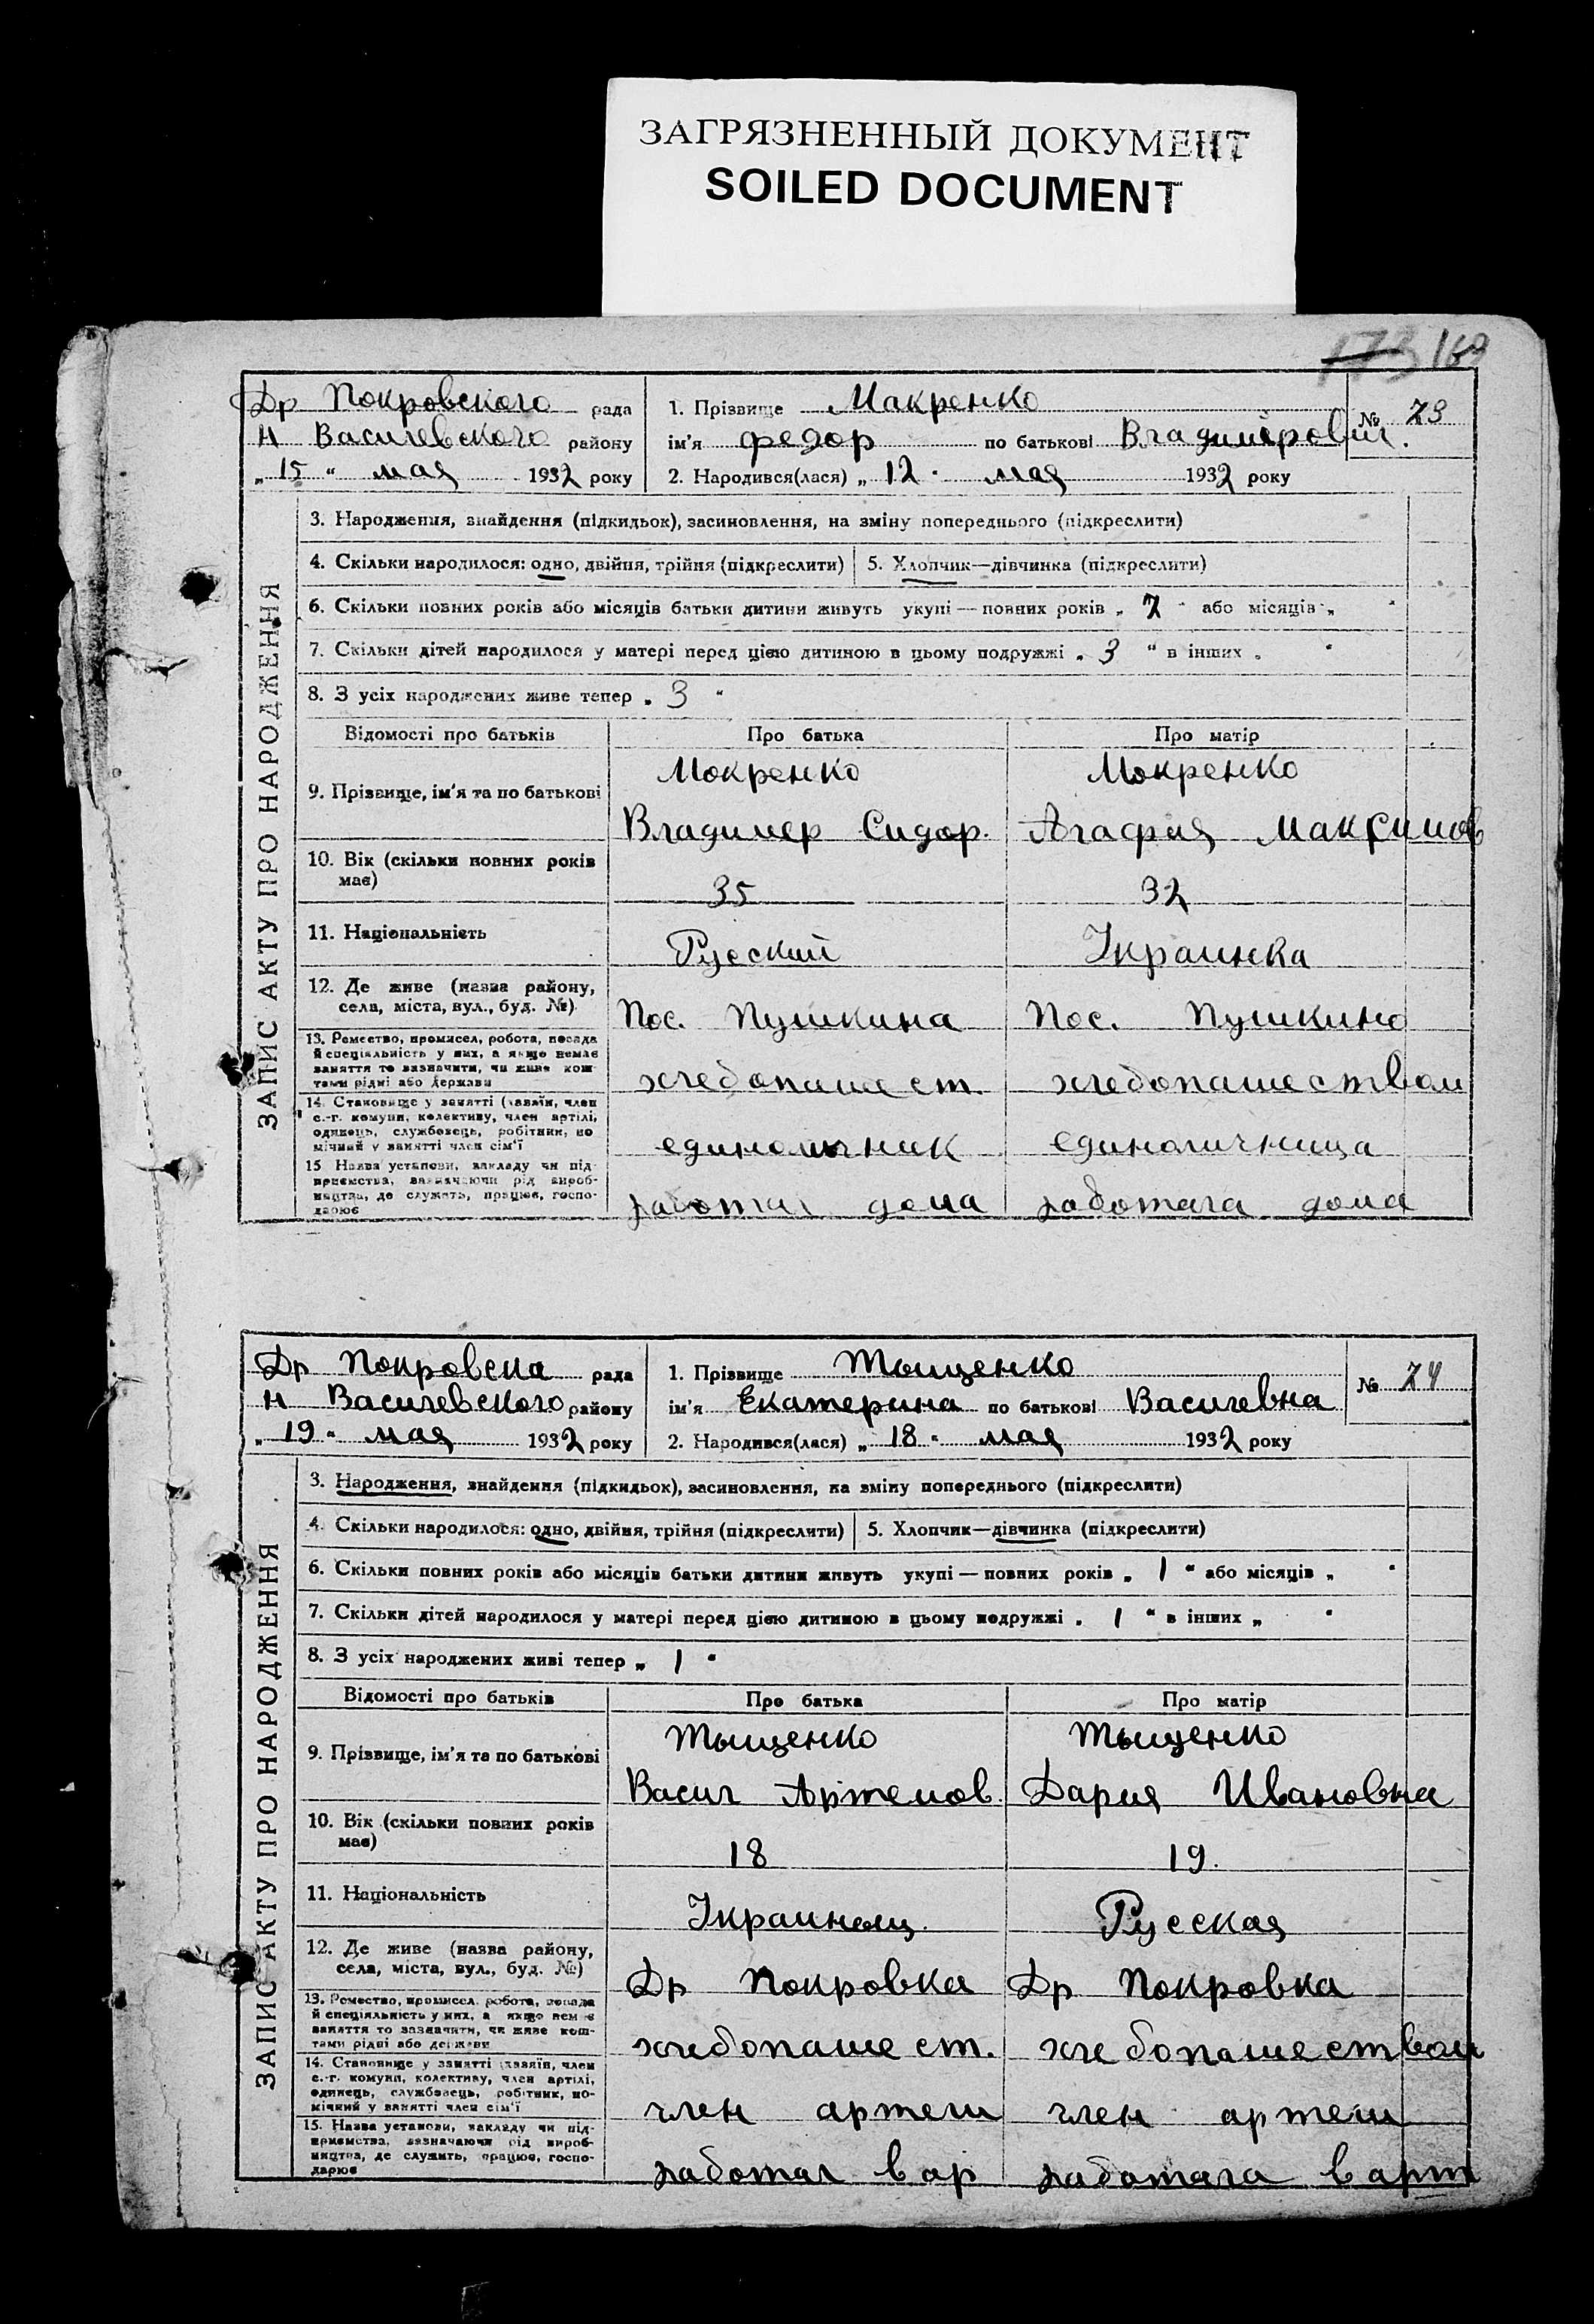 ЗАГРЯЗНЕННЫЙ ДОКУМЕНТ
SOILED DOCUMENT
173 169
Др Покровского рада
Н Василевского району
„ 15 “ мая 1932 року
1. Прізвище Макренко
ім'я федор по батькові Владимерович.
2. Народився(лася) „ 12 " мая 1932 року
№ 73
ЗАПИС АКТУ ПРО НАРОДЖЕННЯ
3. Народження, знайдення (підкидьок), засиновлення, на зміну попереднього (підкреслити)
4. Скільки народилося: одно, двійня, трійня (підкреслити) 5. Хлопчик—дівчинка (підкреслити)
6. Скільки повних років або місяців батьки дитини живуть укупі — повних років „ 7 " або місяців „ "
7. Скільки дітей народилося у матері перед цією дитиною в цьому подружжі „ 3 " в інших „ "
8. З усіх народжених живе тепер „ 3 "
Відомості про батьків Про батька Про матір
9. Прізвище, ім'я та по батькові
Мокренко Мокренко
Владимер Сидор. Агафия Максимов
10. Вік (скільки повних років
має)
35 32
11. Національність
Руский Украинка
12. Де живе (назва району,
села, міста, вул., буд. №)
Пос. Пушкина Пос. Пушкино
13. Ремество, промисел, робота, посада
й спеціяльність у них, а якщо немає
заняття то зазначити, чи живе кош-
тами рідні або держави
хлебопашест. хлебопашеством
14. Становище у занятті (хазяїн, член
с.-г. комуни, колективу, член артілі,
одинець, службовець, робітник, по
мічний у занятті член сім'ї
единоличник единоличница
15. Назва установи, закладу чи під-
приємства, зазначаючи рід вироб-
ництва, де служить, працює, госпо-
дарює
работал дома работала дома
Др Покровска рада
Н Василевского району
„ 19 " мая 1932 року
1. Прізвище Тыщенко
ім'я Екатерина по батькові Василевна
2. Народився(лася) „ 18 " мая 1932 року
№ 74
ЗАПИС АКТУ ПРО НАРОДЖЕННЯ
3. Народження, знайдення (підкидьок), засиновлення, на зміну попереднього (підкреслити)
4. Скільки народилося: одно, двійня, трійня (підкреслити) 5. Хлопчик—дівчинка (підкреслити)
6. Скільки повних років або місяців батьки дитини живуть укупі — повних років „ 1 " або місяців „ "
7. Скільки дітей народилося у матері перед цією дитиною в цьому подружжі „ 1 " в інших „ "
8. З усіх народжених живі тепер „ 1 "
Відомості про батьків Про батька Про матір
9. Прізвище, ім'я та по батькові
Тыщенко Тыщенко
Васил Артемов. Дария Ивановна
10. Вік (скільки повних років
має)
18 19.
11. Національність
Украинец Русская
12. Де живе (назва району,
села, міста, вул., буд. №)
Др Покровка Др Покровка
13. Ремество, промисел, робота, посада
й спеціяльність у них, а якщо немає
заняття то зазначити, чи живе кош-
тами рідні або держави
хлебопашест. хлебопашеством
14. Становище у занятті (хазяїн, член
с.-г. комуни, колективу, член артілі,
одинець, службовець, робітник, по-
мічний у занятті член сім'ї
член артели член артели
15. Назва установи, закладу чи під-
приємства, зазначаючи рід вироб-
ництва, де служить, працює, госпо-
дарює
работал в ар работала в арт